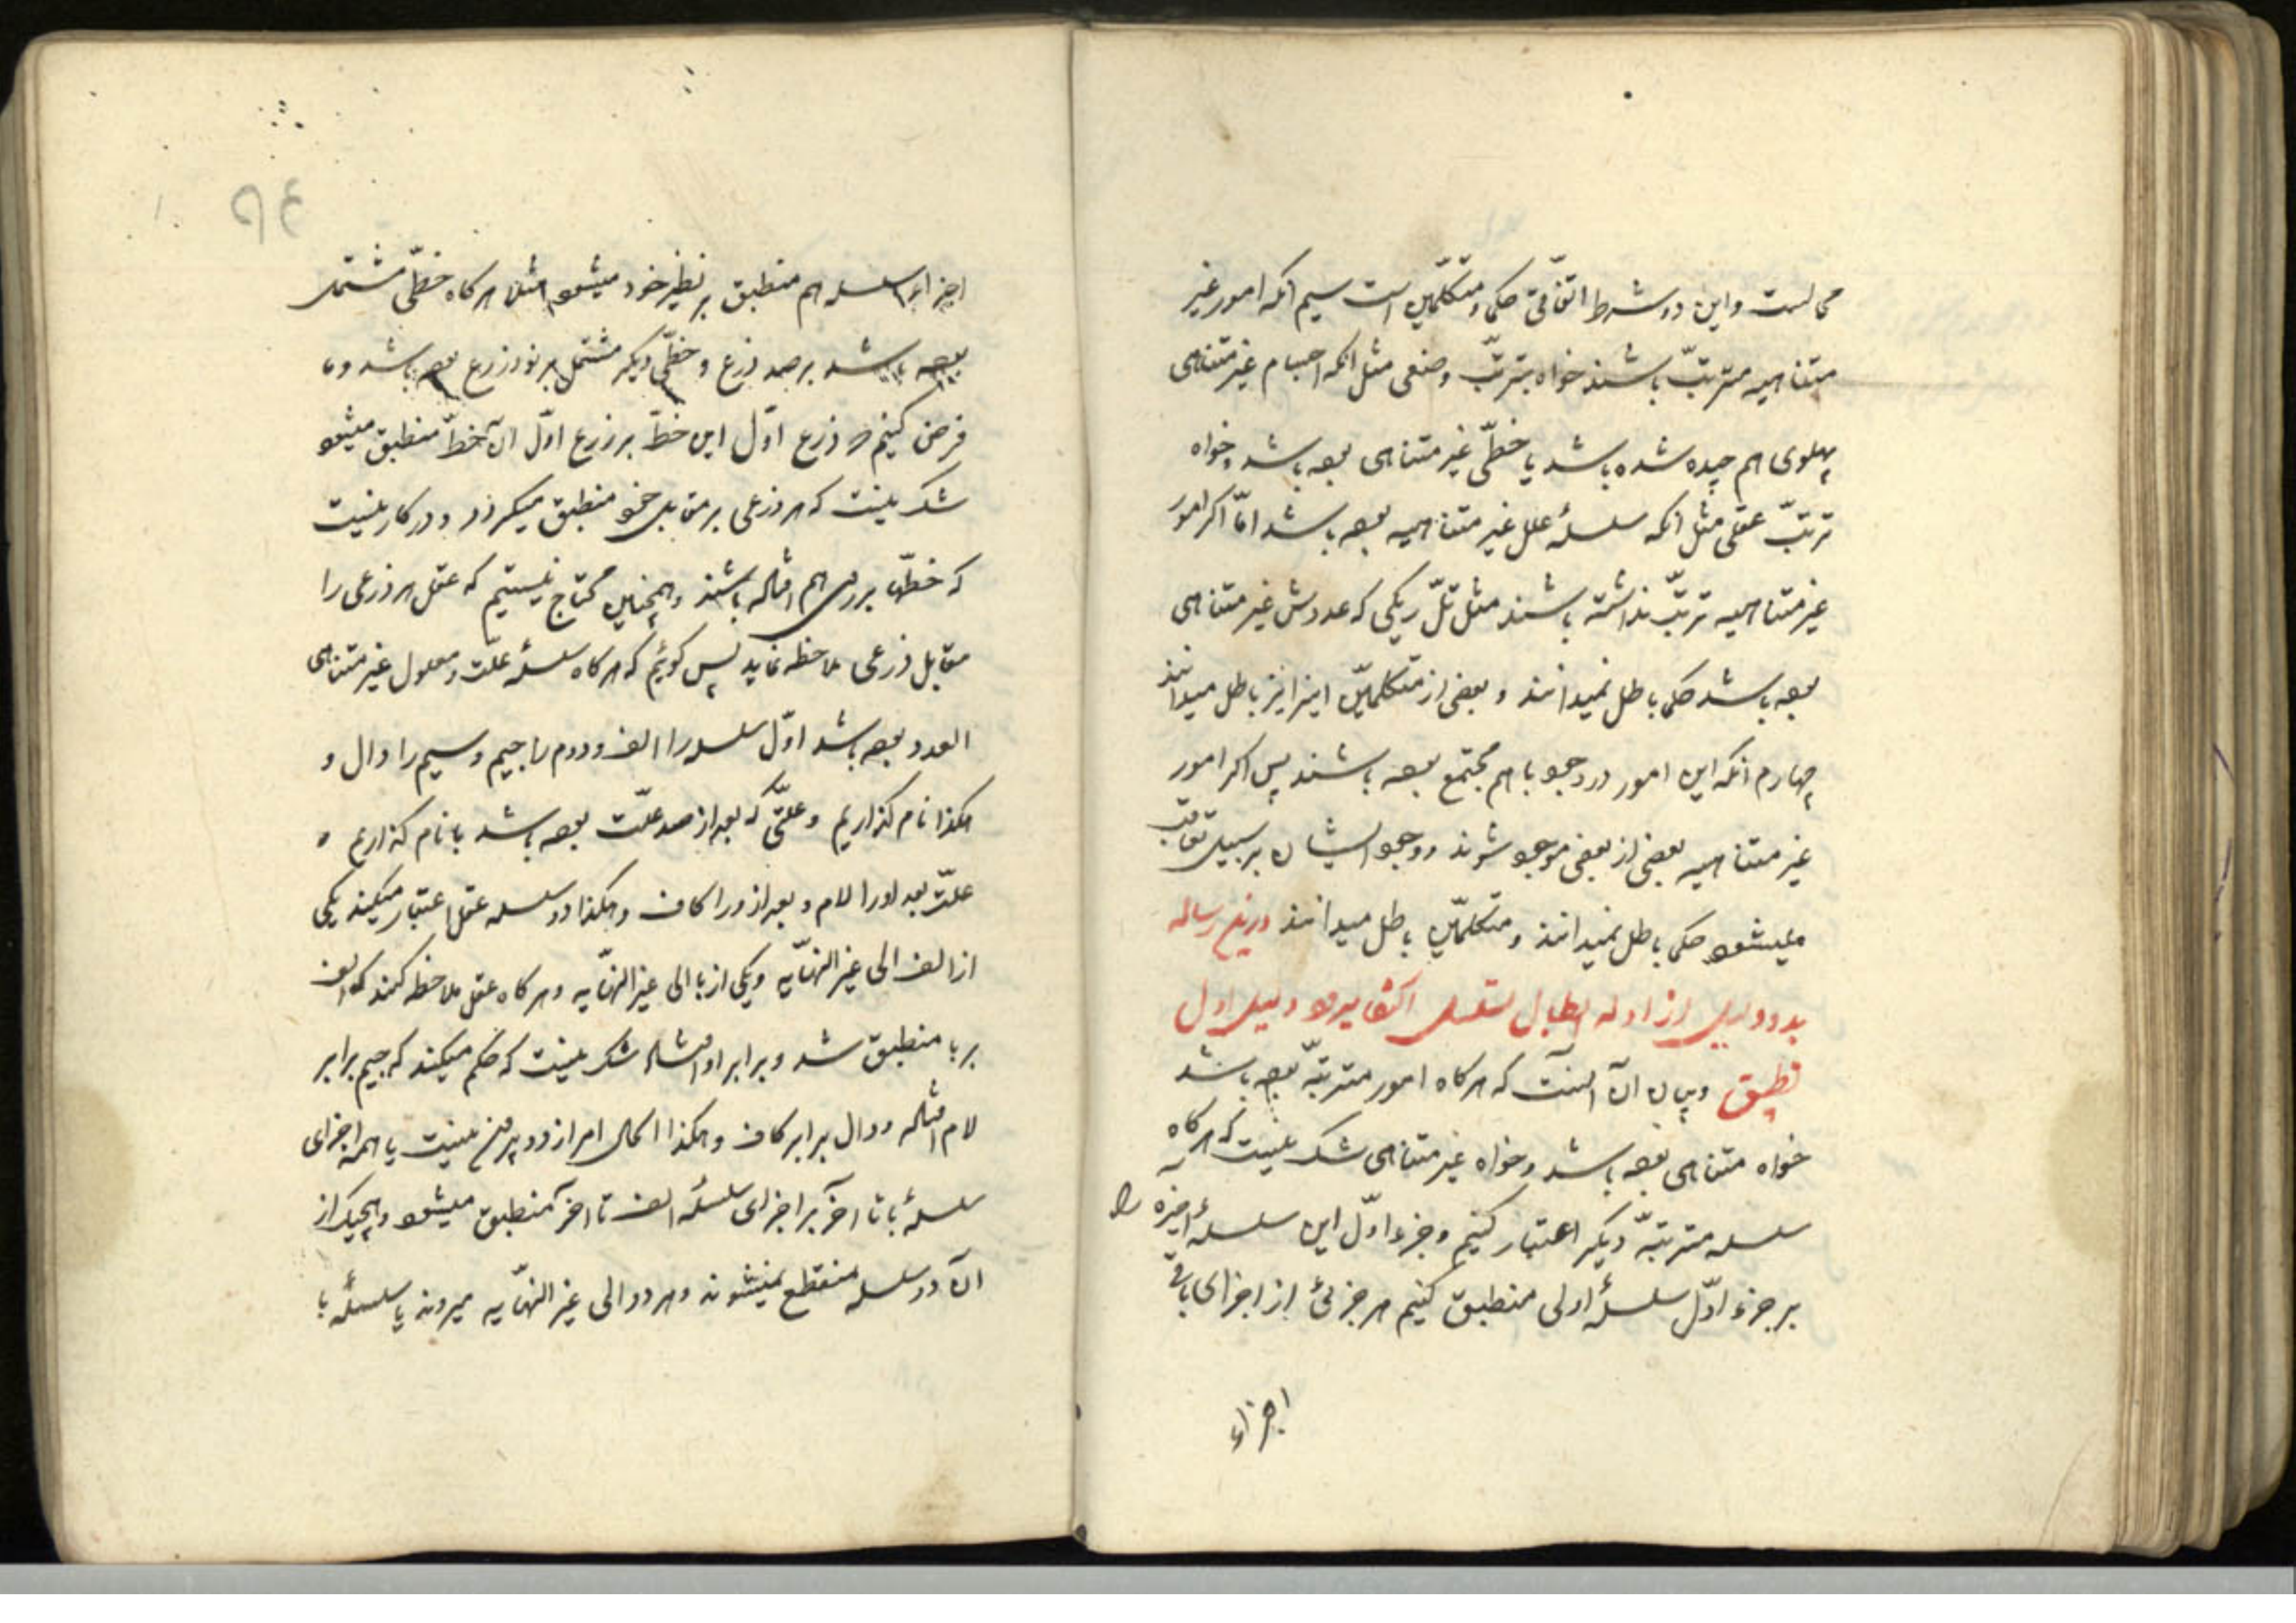 محالست و این دو شرط اتّفاقی حکما و متکلّمین است سیم آنکه امور غیر
متناهیه مترتبّ باشند خواه بترتبّ وضعی مثل آنکه اجسام غیر متناهی
پهلوی هم چیده شده باشد یا خطّی غیر متناهی بوده باشد و خواه
ترتبّ عقلی مثل آنکه سلسلهٔ علل غیر متناهیه بوده باشد امّا اگر امور
غیر متناهیه ترتبّ نداشته باشند مثل تلّ ریگی که عددش غیر متناهی
بوده باشد حکما باطل نمیدانند و بعضی از متکلمّین اینرا نیز باطل میدانند
چهارم آنکه این امور در وجود با هم مجتمع بوده باشند پس اگر امور
غیر متناهیه بعضی از بعضی موجود شوند و وجود ایشان بر سبیل تعاقب
میشود حکما باطل نمیدانند و متکلمّین باطل میدانند درین رساله
بدو دلیل از ادله ابطال تسلسل اکتفا میرود دلیل اول
تطبیق و بیان آن اینست که هر گاه امور مترتبّه بوده باشد
خواه متناهی بوده باشد و خواه غیر متناهی شک نیست که هر گاه
سلسله مترتبّه دیگر اعتبار کنیم و جزء اوّل این سلسلهٔ اخیره را
بر جزء اوّل سلسلهٔ اولی منطبق کنیم هر جزئی از اجزای باقی
اجزاء
۹۴
اجزاء سلسله هم منطبق بر نظیر خود میشود مثلا هر گاه خطّی مشتمل
بوده باشد بر صد ذرع و خطّی دیگر مشتمل بر نود ذرع بوده باشد و ما
فرض کنیم که ذرع اوّل این خطّ بر ذرع اوّل آن خطّ منطبق میشود
شک نیست که هر ذرعی بر مقابل خود منطبق میگردد و در کار نیست
که خطّها بر روی هم افتاده باشند و همچنین محتاج نیستیم که عقل هر ذرعی را
مقابل ذرعی ملاحظه نماید پس گوئیم که هر گاه سلسلهٔ علّت و معلول غیر متناهی
العدد بوده باشد اوّل سلسله را الف و دوم را جیم و سیم را دال و
هکذا نام گذاریم و علّتی که بعد از صد علّت بوده باشد با نام گذاریم و
علّت بعد او را لام و بعد از او را کاف و هکذا دو سلسله عقل اعتبار میکند یکی
از الف الی غیر النهّایه و یکی از با الی غیر النهّایه و هر گاه عقل ملاحظه کند که الف
بر با منطبق شد و برابر او افتاد شک نیست که حکم میکند که جیم برابر
لام افتاده و دال برابر کاف و هکذا الحال امر از دو بیرون نیست یا همه اجزای
سلسلهٔ با تا آخر بر اجزای سلسلهٔ الف تا آخر منطبق میشود و هیچیک از
آن دو سلسله منقطع نمیشوند و هر دو الی غیر النهّایه میروند یا سلسلهٔ با